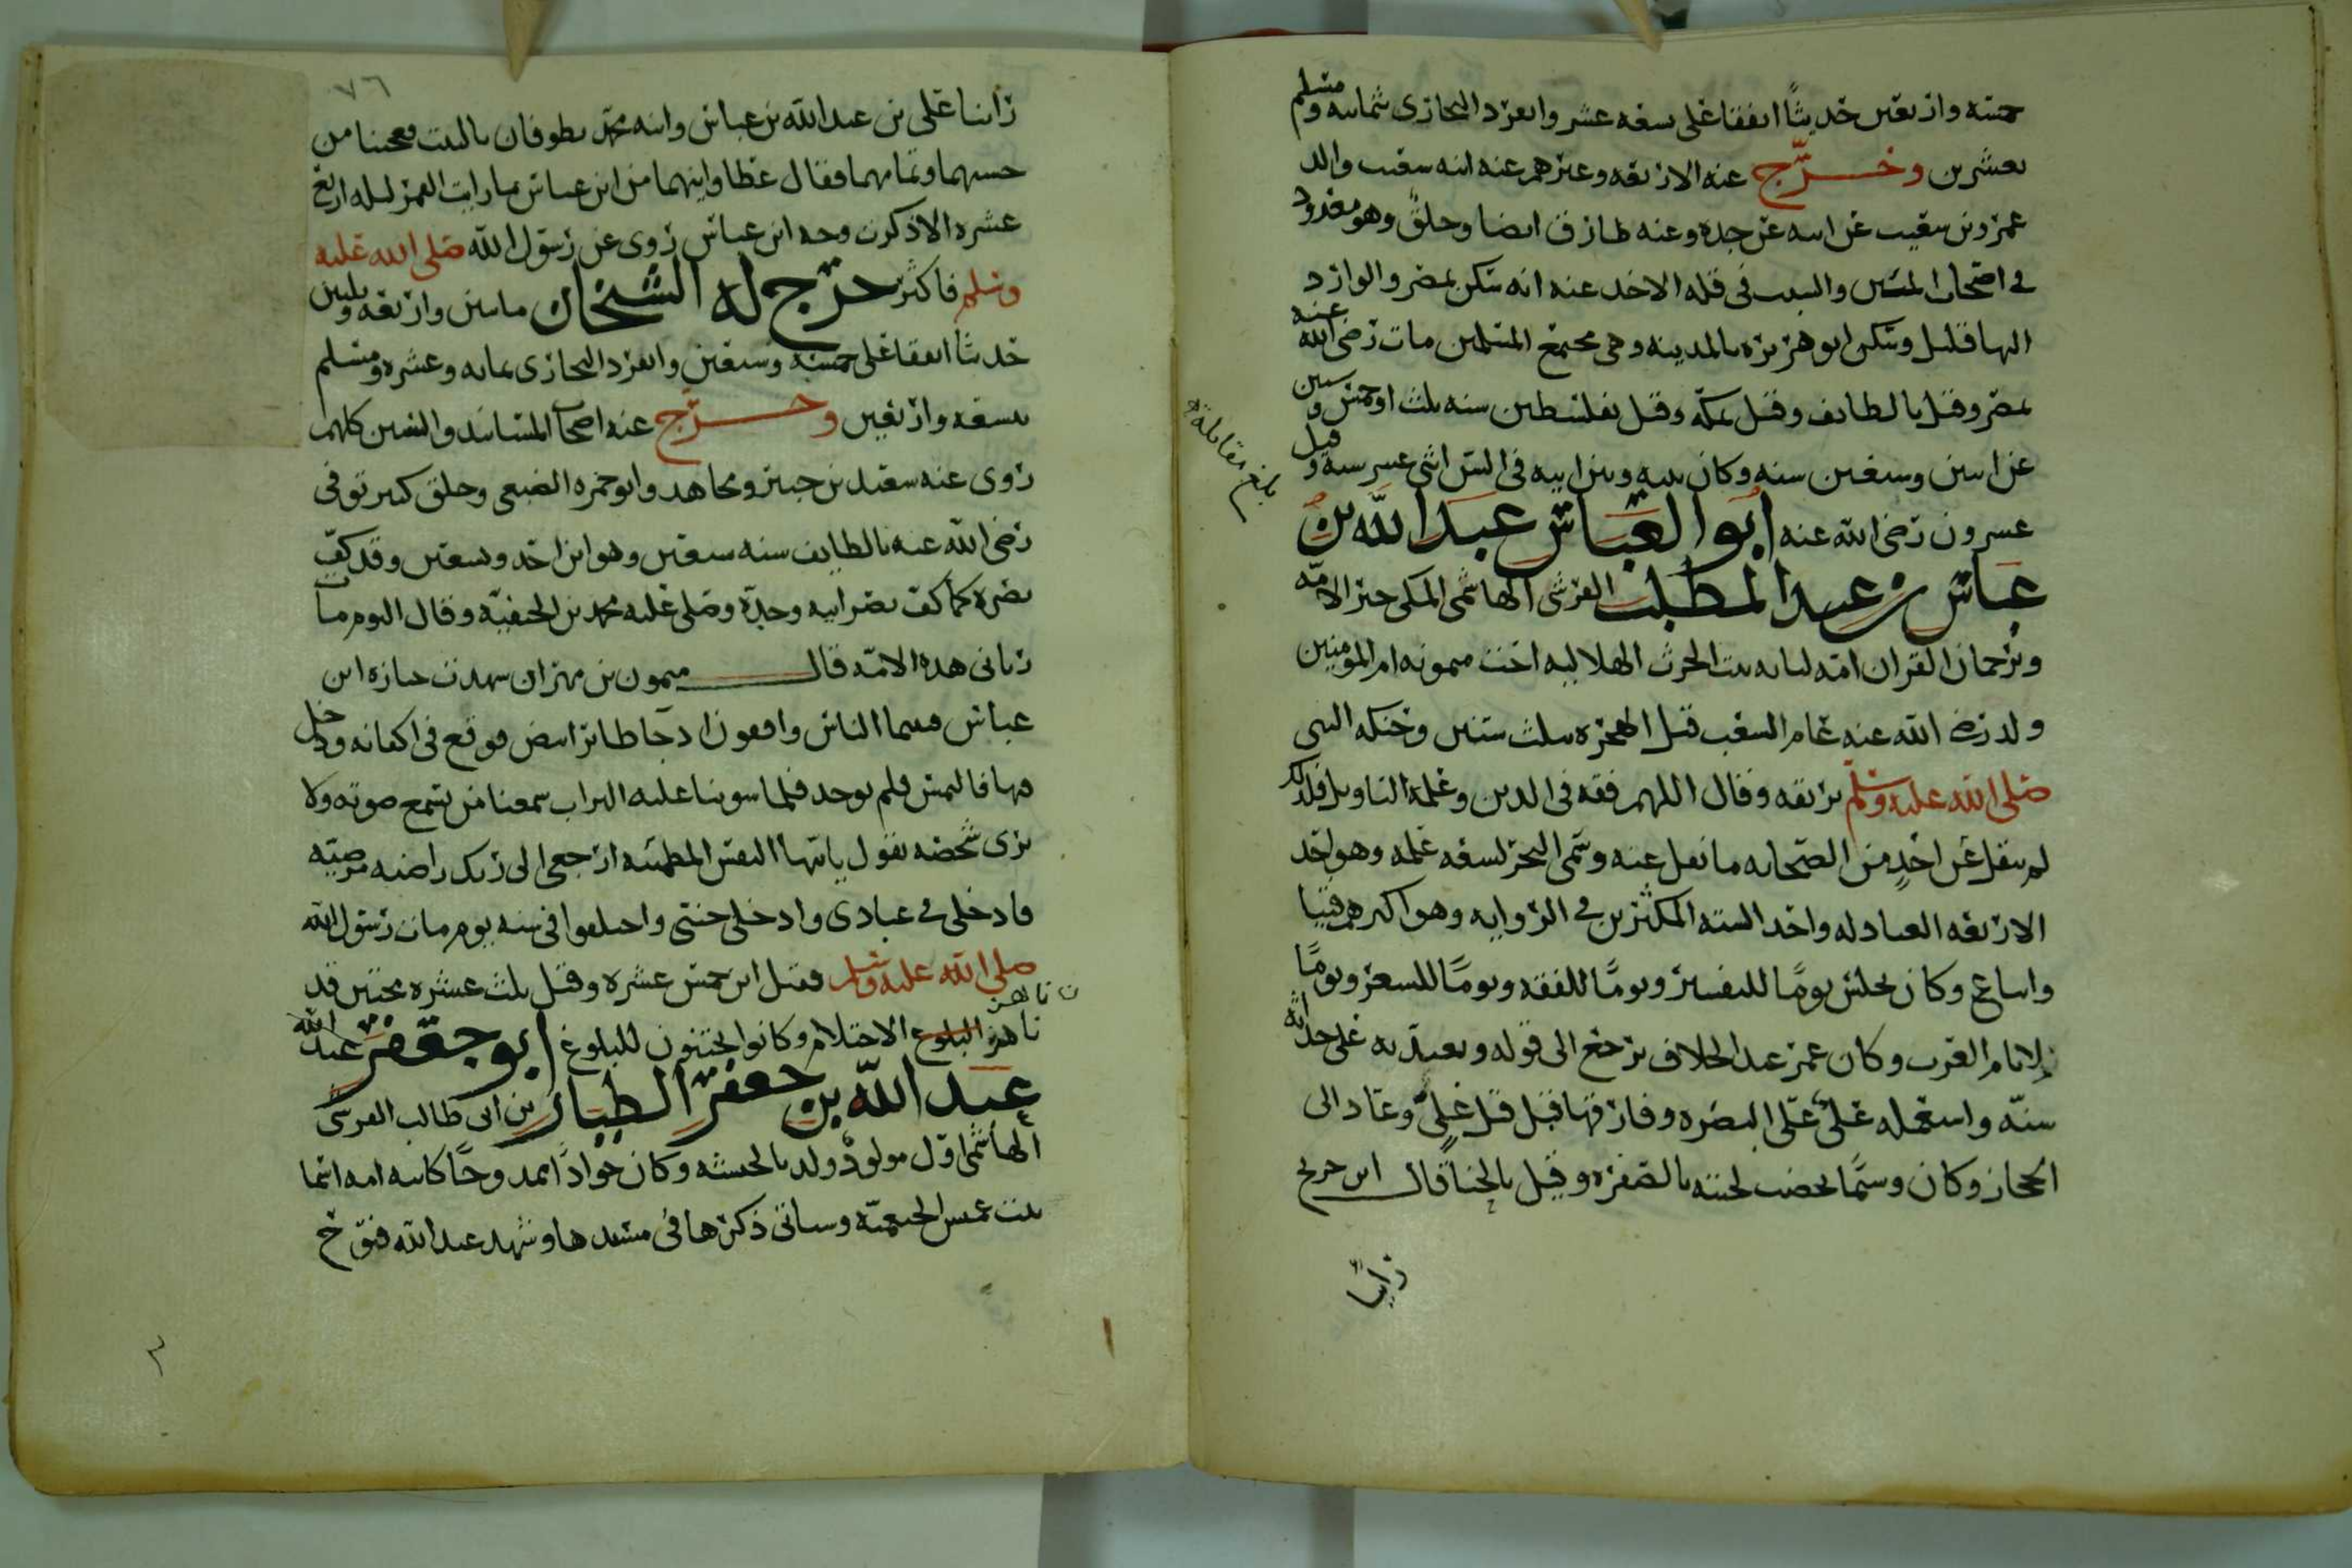 خمسه واربعين حديثًا اتفقا على سبعه عشر وانفرد البخارى بثمانيه ومسلم
بعشرين وخرّج عنه الاربعه وغيرهم عنه ابنه شعيب والد
عمرو بن شعيب عن ابيه عن جده وعنه طارق ايضا وخلقٌ وهو معدود
فى اصحاب المئين والسبب فى قله الاخذ عنه انه سكن بمصر والوارد
اليها قليل وسكن ابو هريره بالمدينه وهى مجتمع المسلمين مات رضى الله عنه
بمصر وقيل بالطايف وقيل بمكه وقيل بفلسطين سنه ثلث او خمس وستين
عن اثنين وسبعين سنه وكان بينه وبين ابيه فى السن اثنى عشر سنه وقيل
عشرون رضى الله عنه ابو العباس عبد الله بن
عباس بن عبد المطلب القرشى الهاشمى المكى حبر الامّه
وترجمان القران امه لبابه بنت الحرث الهلاليه اخت ميمونه ام المومنين
ولد رضى الله عنه عام الشعب قبل الهجره بثلث سنين وحنكه النبى
صلى الله عليه وسلم بريقه وقال اللهم فقه فى الدين وعلمه التاويل فلذلك
لم ينقل عن احدٍ من الصحابه ما نقل عنه وسمى البحر لسعه علمه وهو احد
الاربعه العبادله واحد السته المكثرين فى الروايه وهو اكبرهم فتيا
واتباع وكان يجلس يومًا للتفسير ويومًا للفقه ويومًا للشعر ويومًا
لايام العرب وكان عمر عند الخلاف يرجع الى قوله ويعتد به على حداثه
سنّه واستعمله علىٌّ على البصره وفارقها قبل قتل علىٍّ وعاد الى
الحجاز وكان وسيمًا يخضب لحيته بالصفره وقيل بالحنا قال ابن جريج
راينا
بلغ مقابلة
٧٦
راينا على بن عبد الله بن عباس وابنه محمد يطوفان بالبيت فعجبنا من
حسنهما وتمامهما فقال عطا واينهما من ابن عباس ما رايت القمر ليله اربع
عشره الا ذكرت وجه ابن عباس روى عن رسول الله صلى الله عليه
وسلم فاكثر خرّج له الشيخان مايتين واربعه وثلثين
حديثًا اتفقا على خمسه وسبعين وانفرد البخارى بمايه وعشره ومسلم
بتسعه واربعين وخرّج عنه اصحاب المسانيد والسنن كلهم
روى عنه سعيد بن جبير ومجاهد وابو جمره الضبعى وخلق كثير توفى
رضى الله عنه بالطايف سنه سبعين وهو ابن احد وسبعين وقد كفّ
بصره كما كف بصر ابيه وجدّه وصلى عليه محمد بن الحنفيّه وقال اليوم مات
ربانى هذه الامّه قال ميمون بن مهران شهدت جنازه ابن
عباس فبينما الناس واقفون اذ جآ طائر ابيض فوقع فى اكفانه ودخل
فيها فالتمس فلم يوجد فلما سوينا عليه التراب سمعنا من يسمع صوته ولا
يرى شخصه يقول يايتها النفس المطمئنه ارجعى الى ربك راضيه مرضيّه
فادخلى فى عبادى وادخلى جنتى واختلفوا فى سنه يوم مات رسول الله
صلى الله عليه وسلم فقيل ابن خمس عشره وقيل ثلث عشره مختتن قد
ناهز البلوغ الاحتلام وكانوا يختنون للبلوغ ابو جعفر عبد الله
ن ناهز
عبد الله بن جعفر الطيار بن ابى طالب القرشى
الهاشمى اول مولودٌ ولد بالحبشه وكان جوادًا ممدوحًا كابيه امه اسما
بنت عميس الخثعميّه وسياتى ذكرها فى مسندها وشهد عبد الله فتوح